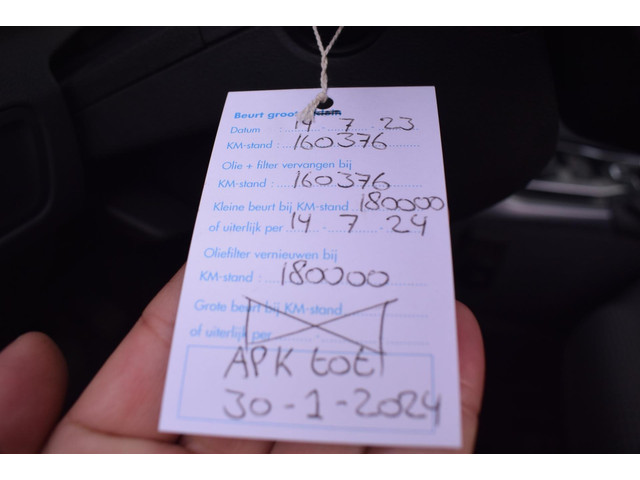 Beurt groot/klein
Datum : 14 - 7 - 23
KM-stand : 160376
Olie + filter vervangen bij
KM-stand : 160376
Kleine beurt bij KM-stand 180000
of uiterlijk per 14 - 7 - 24
Oliefilter vernieuwen bij
KM-stand : 180000
Grote beurt bij KM-stand
of uiterlijk per
APK tot
30-1-2024